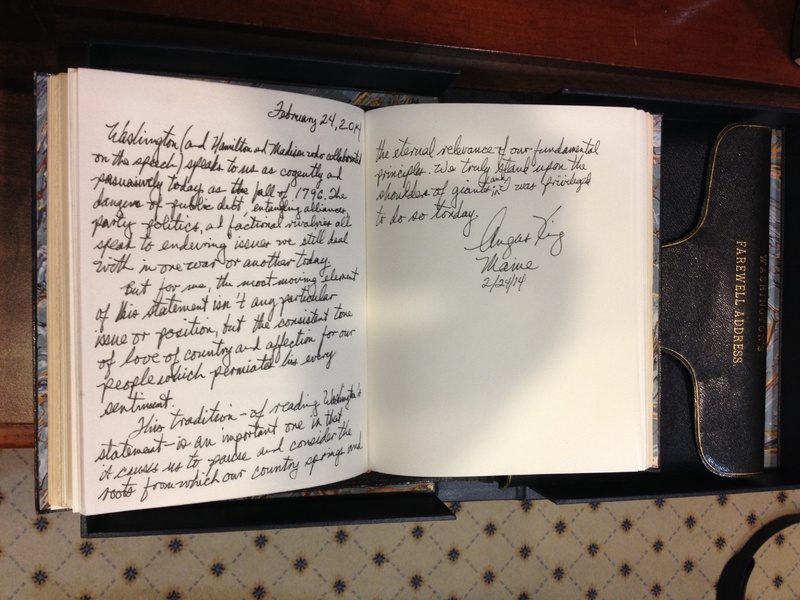 February 24, 2014
Washington (and Hamilton and Madison who collaborated
on the speech) speaks to us as cogently and
persuasively today as the fall of 1796. The
dangers of public debt, entangling alliances,
party politics, ad factional rivalries all
speak to enduring issues we still deal
with in one way or another today.
But for me, the most moving element
of this statement isn't any particular
issue or position, but the consistent tone
of love of country and affection for our
people which permiates his every
sentiment.
This tradition - of reading Washington's
statement - is an important one in that
it causes us to pause and consider the
roots from which our country springs and
the eternal relevance of our fundamental
principles. We truly stand upon the
shoulders of giants and I was privileged
to do so today.
Angus King
Maine
2/24/14
WASHINGTON'S
FAREWELL ADDRESS